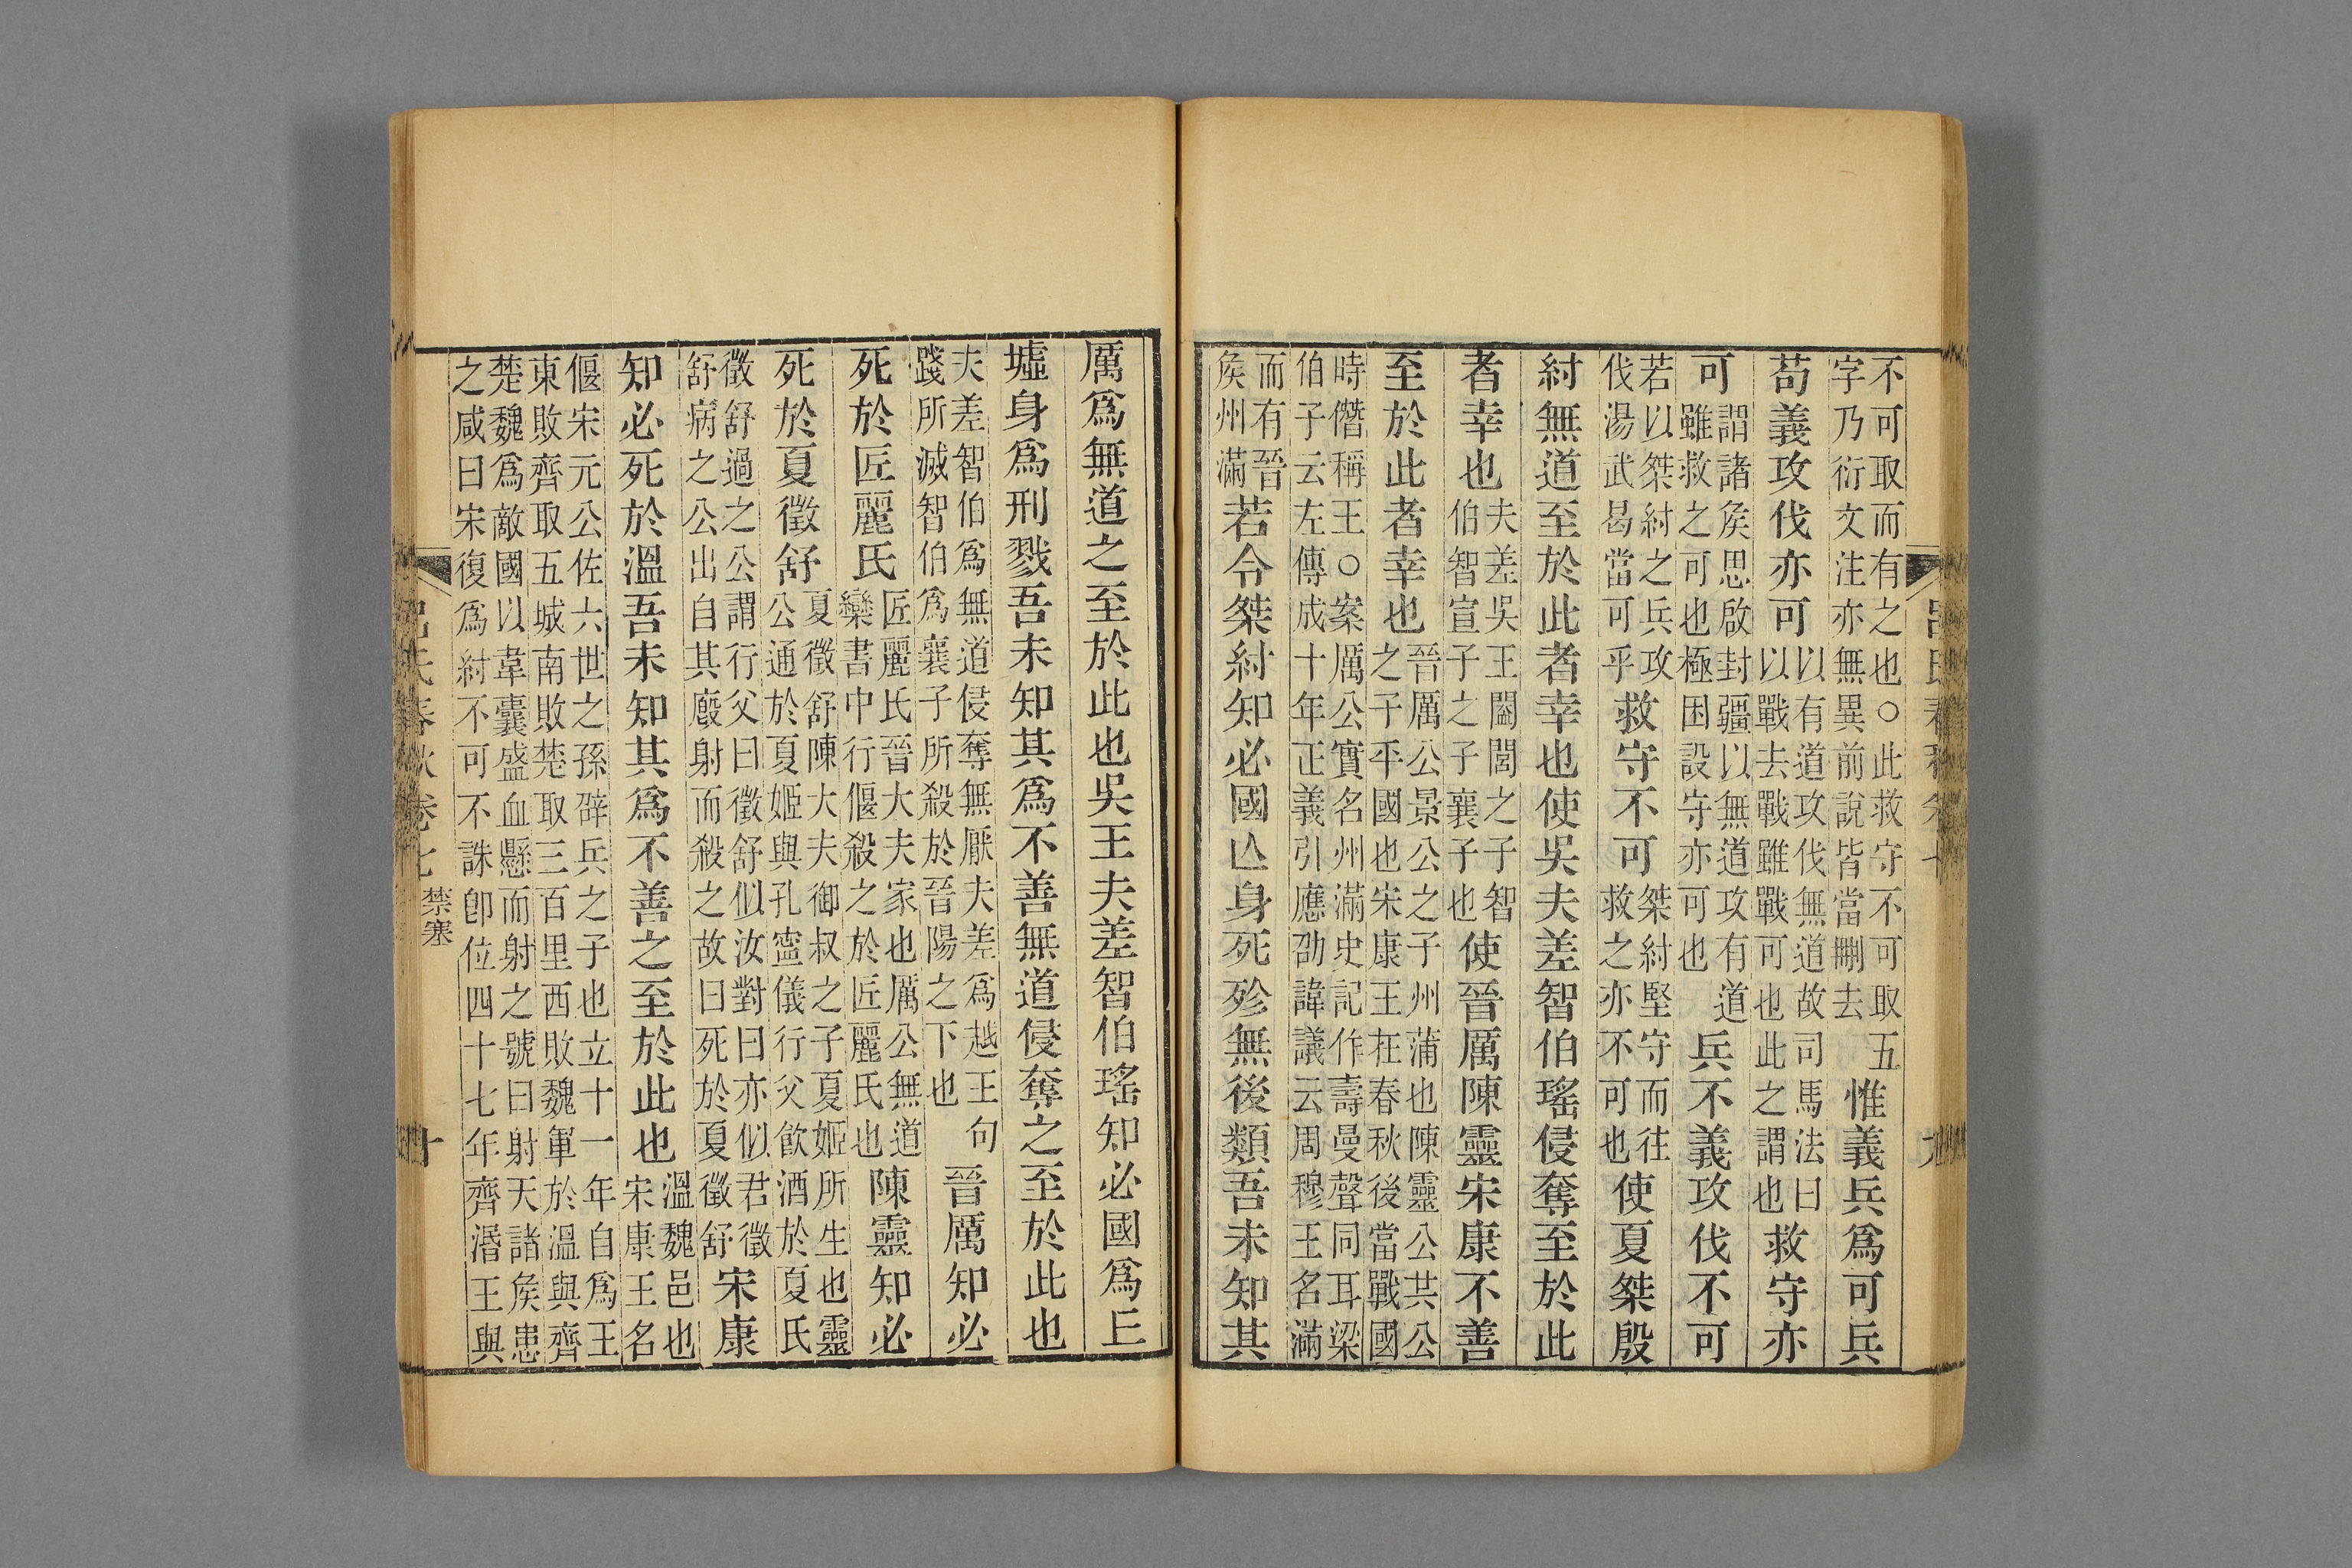 呂氏春秋
九
不可取而有之也○此救守不可取五
字乃衍文注亦無異前說皆當刪去
惟義兵爲可兵
苟義攻伐亦可
以有道攻伐無道故司馬法曰
以戰去戰雖戰可也此之謂也
救守亦
可
謂諸矦思啟封疆以無道攻有道
雖救之可也極困設守亦可也
兵不義攻伐不可
若以桀紂之兵攻
伐湯武曷當可乎
救守不可
桀紂堅守而往
救之亦不可也
使夏桀殷
紂無道至於此者幸也使吳夫差智伯瑤侵奪至於此
者幸也
夫差吳王闔閭之子智
伯智宣子之子襄子也
使晉厲陳靈宋康不善
至於此者幸也
晉厲公景公之子州蒲也陳靈公共公
之子平國也宋康王在春秋後當戰國
時僭稱王○案厲公實名州滿史記作壽曼聲同耳梁
伯子云左傳成十年正義引應劭諱議云周穆王名滿
而有晉
矦州滿
若令桀紂知必國亾身死殄無後類吾未知其
厲爲無道之至於此也吳王夫差智伯瑤知必國爲丘
墟身爲刑戮吾未知其爲不善無道侵奪之至於此也
夫差智伯爲無道侵奪無厭夫差爲越王句
踐所滅智伯爲襄子所殺於晉陽之下也
晉厲知必
死於匠麗氏
匠麗氏晉大夫家也厲公無道
欒書中行偃殺之於匠麗氏也
陳靈知必
死於夏徵舒
夏徵舒陳大夫御叔之子夏姬所生也靈
公通於夏姬與孔寧儀行父飲酒於夏氏
徵舒過之公謂行父曰徵舒似汝對曰亦似君徵
舒病之公出自其廄射而殺之故曰死於夏徵舒
宋康
知必死於溫吾未知其爲不善之至於此也
溫魏邑也
宋康王名
偃宋元公佐六世之孫辟兵之子也立十一年自爲王
東敗齊取五城南敗楚取三百里西敗魏軍於溫與齊
楚魏爲敵國以韋囊盛血懸而射之號曰射天諸矦患
之咸曰宋復爲紂不可不誅卽位四十七年齊湣王與
呂氏春秋卷七
禁塞
十